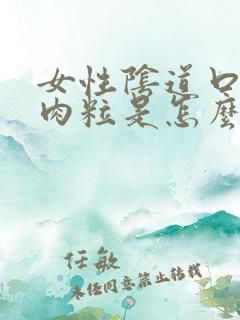 女性陰道口
肉粒是怎麼
任敏
未经同意禁止转载